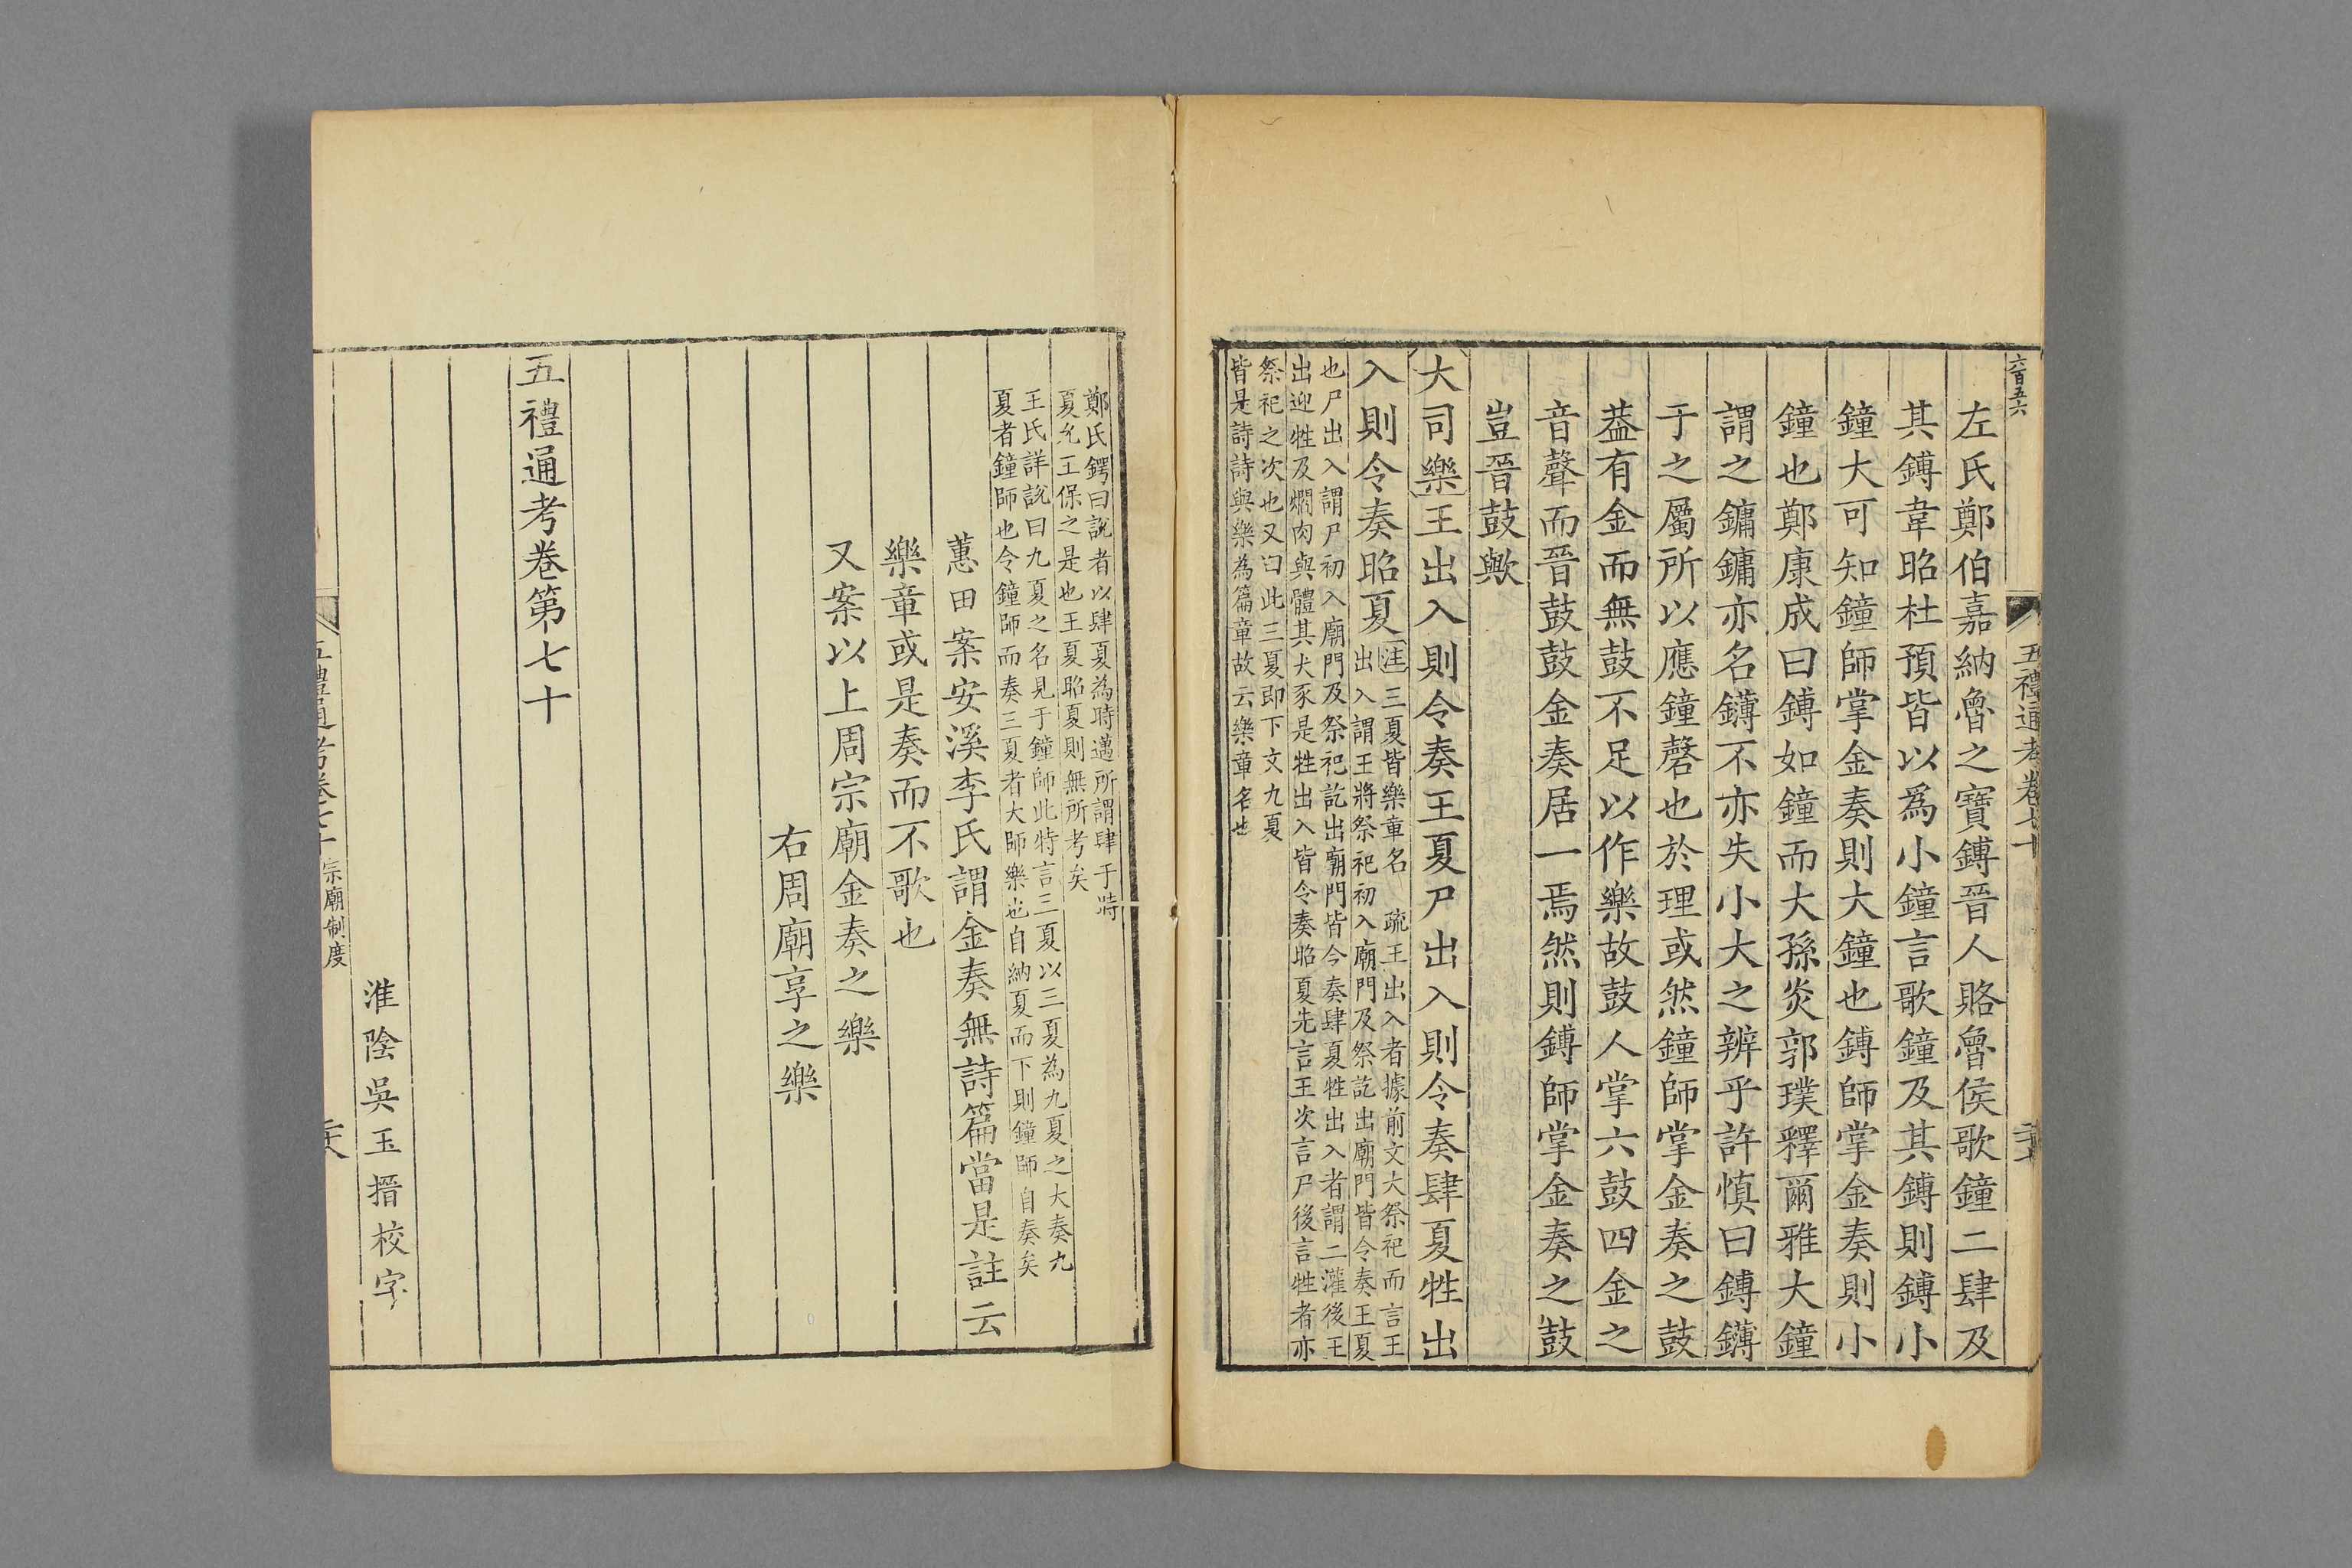 六百五六
五禮通考卷七十
左氏鄭伯嘉納魯之寶鎛晉人賂魯侯歌鐘二肆及
其鎛韋昭杜預皆以爲小鐘言歌鐘及其鎛則鎛小
鐘大可知鐘師掌金奏則大鐘也鎛師掌金奏則小
鐘也鄭康成曰鎛如鐘而大孫炎郭璞釋爾雅大鐘
謂之鏞鏞亦名鑮不亦失小大之辨乎許慎曰鎛鑮
于之屬所以應鐘磬也於理或然鐘師掌金奏之鼓
葢有金而無鼓不足以作樂故鼓人掌六鼓四金之
音聲而晉鼓鼓金奏居一焉然則鎛師掌金奏之鼓
豈晉鼓歟
大司樂王出入則令奏王夏尸出入則令奏肆夏牲出
入則令奏昭夏
注三夏皆樂章名 疏王出入者據前文大祭祀而言王
出入謂王將祭祀初入廟門及祭訖出廟門皆令奏王夏
也尸出入謂尸初入廟門及祭祀訖出廟門皆令奏肆夏牲出入者謂二灌後王
出迎牲及爓肉與體其犬豕是牲出入皆令奏昭夏先言王次言尸後言牲者亦
祭祀之次也又曰此三夏即下文九夏
皆是詩詩與樂為篇章故云樂章名也
鄭氏鍔曰說者以肆夏為時邁所謂肆于時
夏允王保之是也王夏昭夏則無所考矣
王氏詳說曰九夏之名見于鐘師此特言三夏以三夏為九夏之大奏九
夏者鐘師也令鐘師而奏三夏者大師樂也自納夏而下則鐘師自奏矣
蕙田案安溪李氏謂金奏無詩篇當是註云
樂章或是奏而不歌也
又案以上周宗廟金奏之樂
右周廟享之樂
五禮通考卷第七十
淮陰吳玉搢校字
五禮通考卷七十 宗廟制度